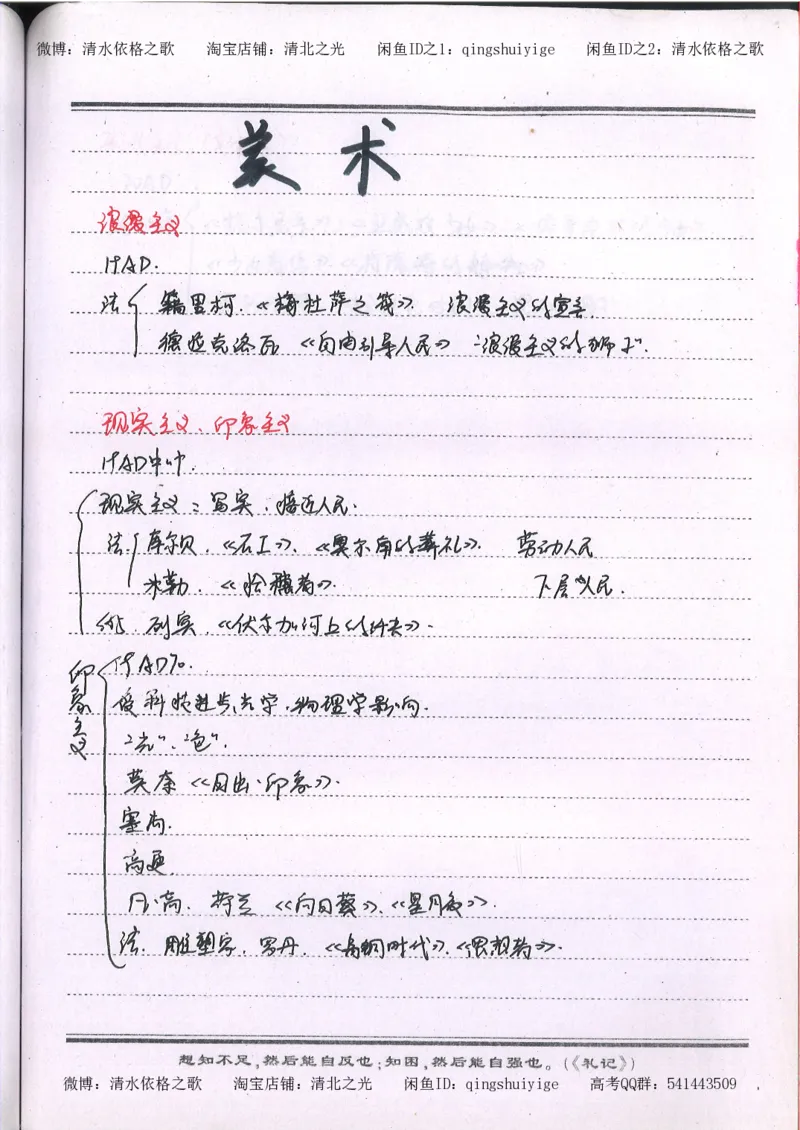 微博：清水依格之歌 淘宝店铺：清北之光 闲鱼ID之1：qingshuiyige 闲鱼ID之2：清水依格之歌
美术
浪漫主义
19AD.
法 籍里柯.《梅杜萨之筏》 浪漫主义的宣言.
德拉克洛瓦 《自由引导人民》 "浪漫主义的狮子".
现实主义、印象主义
19AD中叶.
现实主义：写实，接近人民.
法 库尔贝.《石工》、《奥尔南的葬礼》. 劳动人民
米勒.《拾穗者》. 下层人民.
俄. 列宾，《伏尔加河上的纤夫》.
印象主义
19AD70.
受科技进步，光学，物理学影响.
"光"、"色".
莫奈《日出·印象》.
塞尚.
高更.
凡·高. 荷兰 《向日葵》、《星月夜》.
法. 雕塑家. 罗丹.《青铜时代》、《思想者》.
知不足，然后能自反也；知困，然后能自强也。（《礼记》）
微博：清水依格之歌 淘宝店铺：清北之光 闲鱼ID：qingshuiyige 高考QQ群：541443509